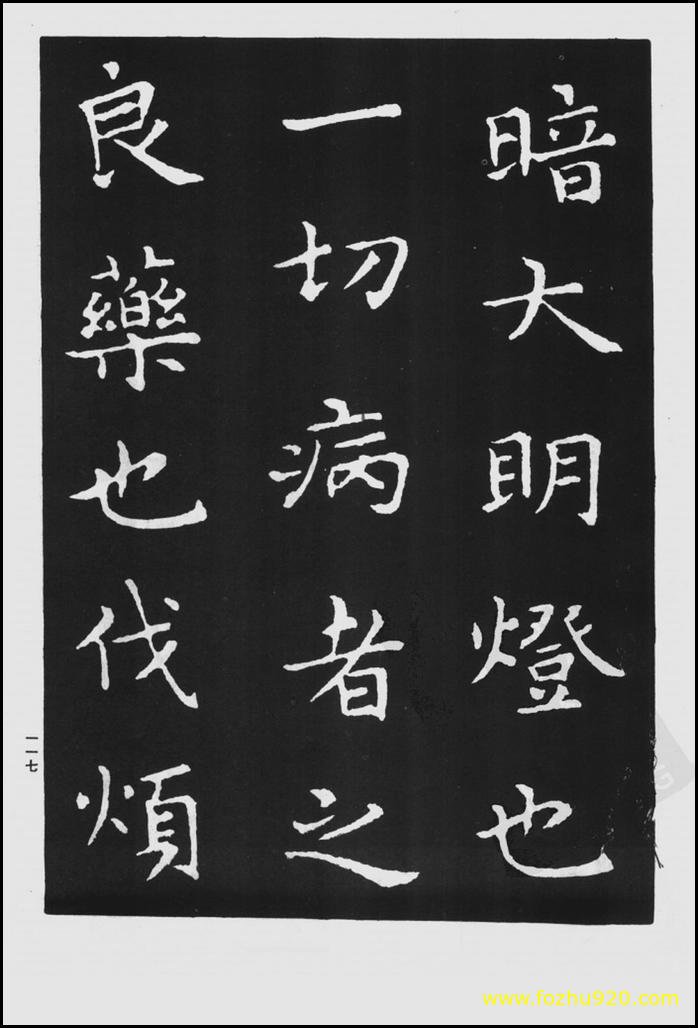 暗大明燈也
一切病者之
良藥也伐煩
一一七
www.fozhu920.com